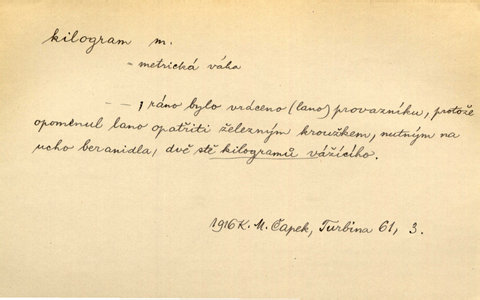 kilogram m.
- metrická váha
- - , ráno bylo vráceno (lano) provazníku, protože
opomenul lano opatřiti železným kroužkem, nutným na
ucho beranidla, dvě stě kilogramů vážícího.
1916 K. M. Čapek, Turbina 61, 3.